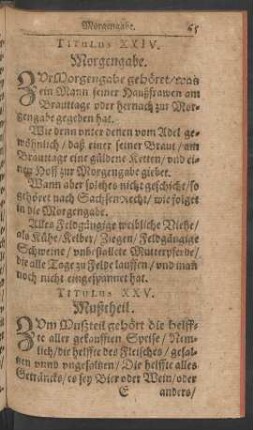 Morgengabe. 65
TITULUS XXIV.
Morgengabe.
ZUr Morgengabe gehöret / was
ein Mann seiner Haußfrawen am
Brauttage oder hernach zur Mor-
gengabe gegeben hat.
Wie denn unter denen vom Adel ge-
wöhnlich / daß einer seiner Braut / am
Brauttage eine güldene Ketten / und ei-
nen Hoff zur Morgengabe giebet.
Wann aber solches nicht geschicht / so
gehöret nach Sachsenrecht / wie folget
in die Morgengabe.
Alles Feldgängige weibliche Viehe /
als Kühe / Kelber / Ziegen / Feldgängige
Schweine / unbestallete Mutterpferde /
die alle Tage zu Felde lauffen / und man
noch nicht eingespannet hat.
TITULUS XXV.
Mußtheil.
ZUm Mußteil gehört die helff-
te aller gekaufften Speise / Nem-
lich / die helffte des Fleisches / gesal-
tzen vnnd vngesaltzen / Die helffte alles
Getráncks / es sey Bier oder Wein / oder
E anders /